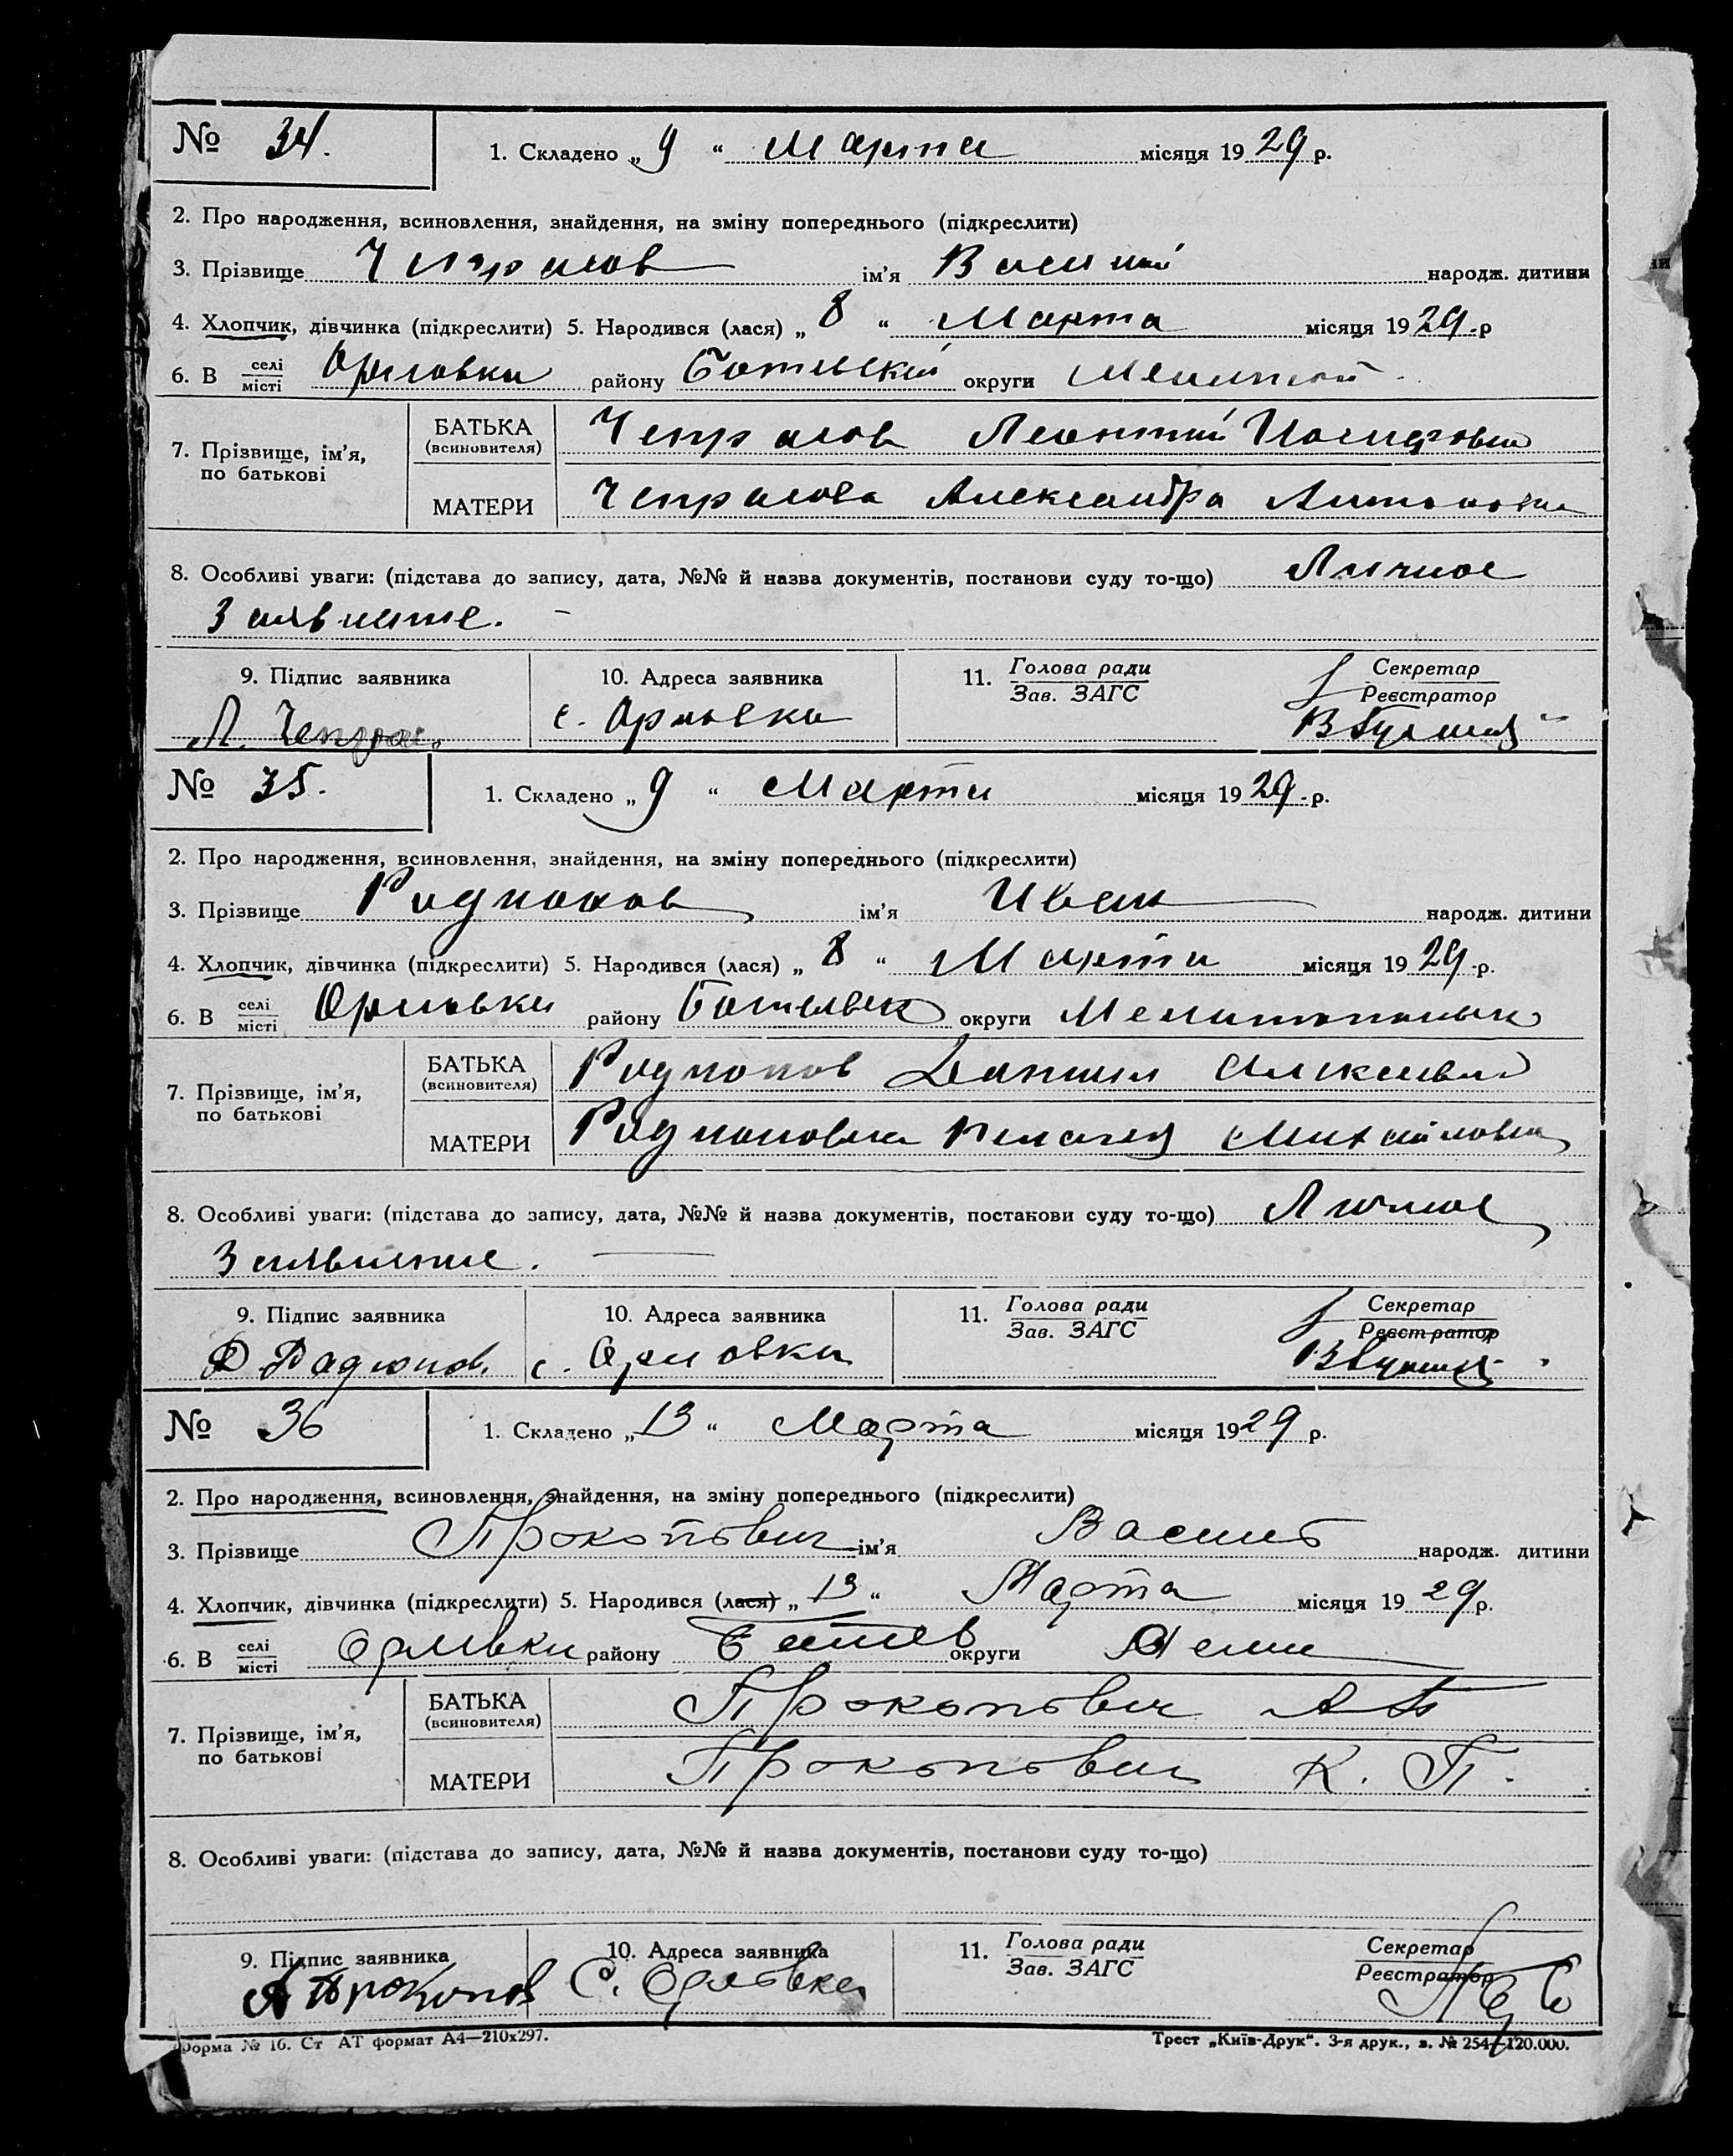 № 34. 1. Складено „9“ Марта місяця 1929 р.
2. Про народження, всиновлення, знайдення, на зміну попереднього (підкреслити)
3. Прізвище ім'я Василий народж. дитини
4. Хлопчик, дівчинка (підкреслити) 5. Народився (лася) „8“ Марта місяця 1929 р
6. В селі/місті Орловки району округи
7. Прізвище, ім'я, по батькові
БАТЬКА (всиновителя) Леонтий Иосифович
МАТЕРИ Александра Антоновна
8. Особливі уваги: (підстава до запису, дата, №№ й назва документів, постанови суду то-що) Личное
Заявление. –
9. Підпис заявника 10. Адреса заявника 11. Голова ради/Зав. ЗАГС Секретар/Реєстратор
Л. с. Орловка
№ 35. 1. Складено „9“ Марта місяця 1929 р.
2. Про народження, всиновлення, знайдення, на зміну попереднього (підкреслити)
3. Прізвище Радионов ім'я Иван народж. дитини
4. Хлопчик, дівчинка (підкреслити) 5. Народився (лася) „8“ Марта місяця 1929 р.
6. В селі/місті Орловки району округи
7. Прізвище, ім'я, по батькові
БАТЬКА (всиновителя) Радионов Даниил Алексеевич
МАТЕРИ Пелагея Михайловна
8. Особливі уваги: (підстава до запису, дата, №№ й назва документів, постанови суду то-що) Личное
Заявление. —
9. Підпис заявника 10. Адреса заявника 11. Голова ради/Зав. ЗАГС Секретар/Реєстратор
Д. Радионов. с. Орловка
№ 36 1. Складено „13“ Марта місяця 1929 р.
2. Про народження, всиновлення, знайдення, на зміну попереднього (підкреслити)
3. Прізвище Прокопович ім'я Василь народж. дитини
4. Хлопчик, дівчинка (підкреслити) 5. Народився (лася) „13“ Марта місяця 1929 р.
6. В селі/місті району округи
7. Прізвище, ім'я, по батькові
БАТЬКА (всиновителя) Прокопович
МАТЕРИ Прокопович К. П.
8. Особливі уваги: (підстава до запису, дата, №№ й назва документів, постанови суду то-що)
9. Підпис заявника 10. Адреса заявника 11. Голова ради/Зав. ЗАГС Секретар/Реєстратор
А Прокопов С. Орловка
Форма № 16. Ст АТ формат А4—210x297. Трест „Київ-Друк“. 3-я друк., з. № 254—120.000.